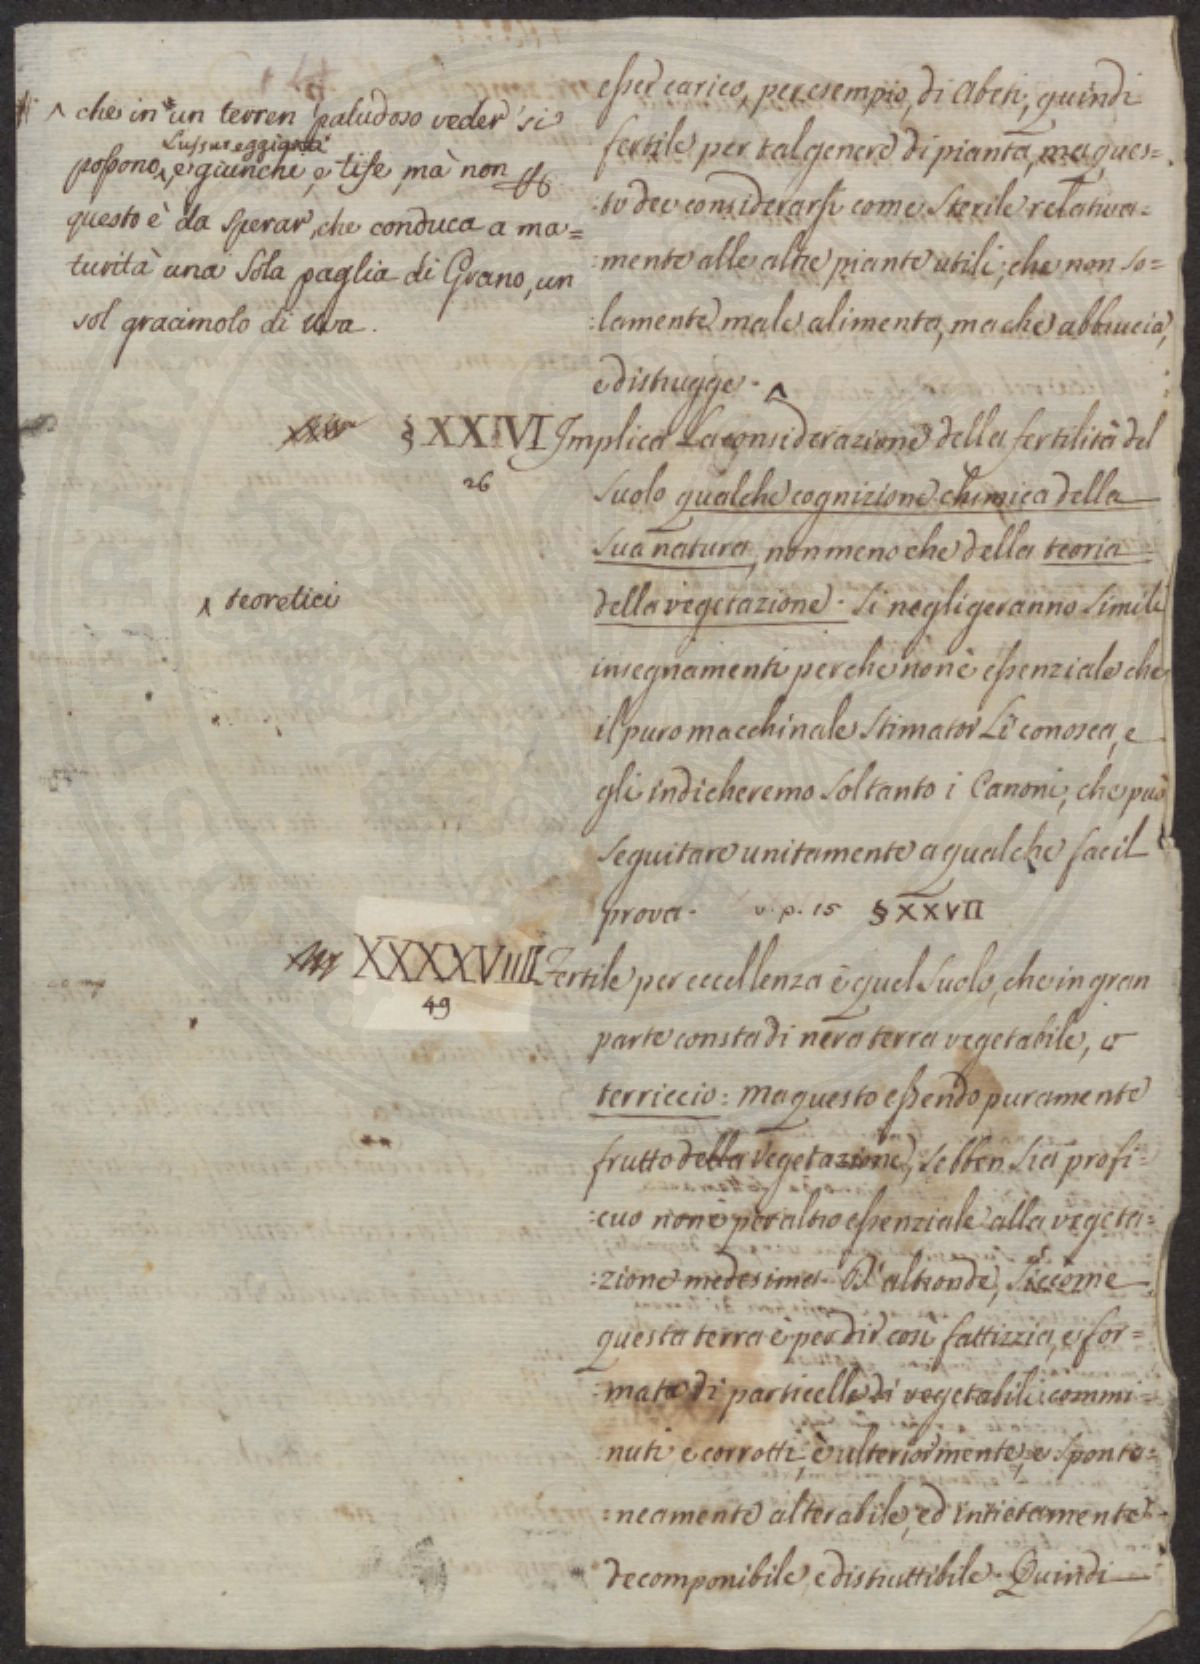 ^ che in un terren paludoso veder si
lussureggianti
possono ^ e giunchi, e tife, mà non
questo è da sperar, che conduca a ma=
turità una sola paglia di Grano, un
sol gracimolo di Uva.
esser carico, per esempio, di Abeti, quindi
fertile per tal genere di pianta, ma ques=
to dee considerarsi come sterile relativa=
:mente alle altre piante utili, che non so=
:lamente male alimenta, ma che abbrucia,
e distrugge. ^
§ XXIVI Implica la considerazione della fertilità del
26
suolo qualche cognizione chimica della
sua natura, non meno che della teoria
^ teoretici
della vegetazione. Si negligeranno simili
insegnamenti perche non è essenziale che
il puro macchinale stimator li conosca, e
gli indicheremo soltanto i Canoni, che può
seguitare unitamente a qualche facil
prova. v. p. 15 § XXVII
XXXXVIIII Fertile per eccellenza è quel suolo, che in gran
49
parte consta di nera terra vegetabile, o
terriccio: ma questo essendo puramente
frutto della vegetazione, sebben sia profi=
:cuo non è per altro essenziale alla vegeta=
:zione medesima. D'altronde, siccome
questa terra è per dir così fattizzia, e for=
:mata di particelle di vegetabili commi=
:nuti e corrotti, è ulteriormente, e sponta=
:neamente alterabile, ed intieramente
decomponibile, e distruttibile. Quindi